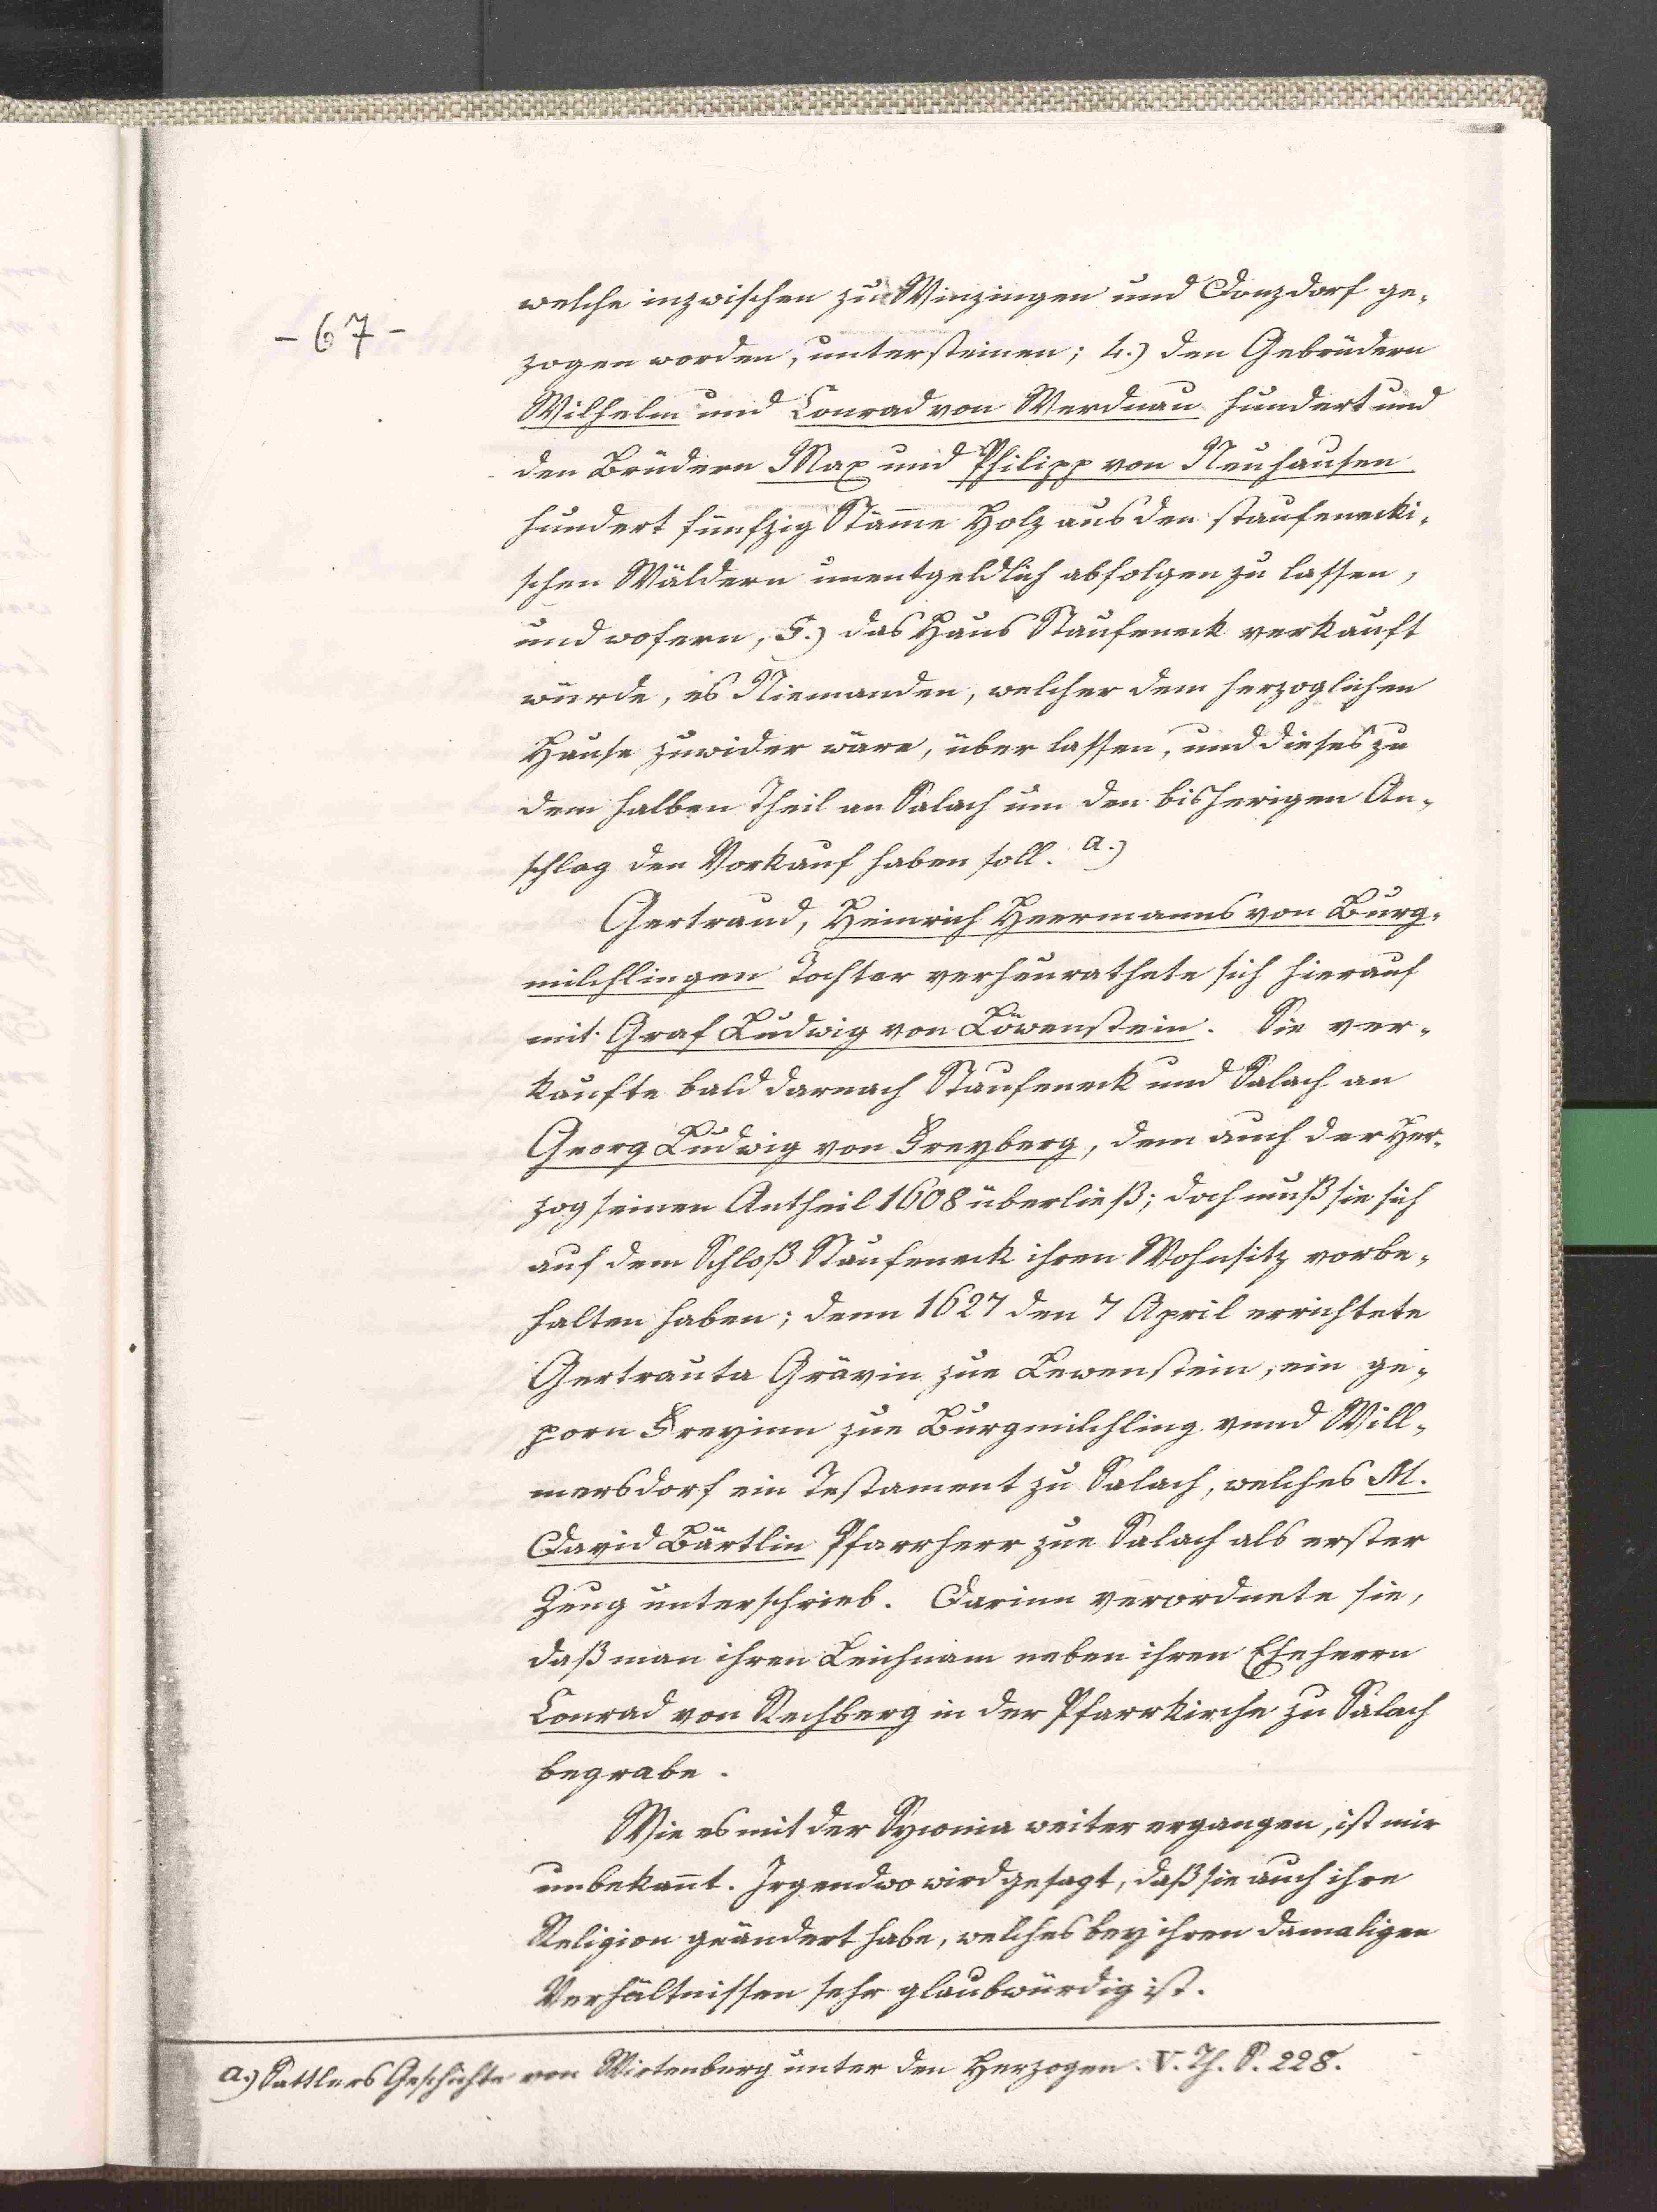 - 67 -
welche inzwischen zu Winzingen und Donzdorf ge-
zogen worden, untersteinen; 4.) den Gebrüdern
Wilhelm und Conrad von Werdnau hundert und
den Brüdern Max und Philipp von Neuhausen
hundert fünfzig Stäme Holz aus den staufenecki-
schen Wäldern unentgeldlich abfolgen zu lassen,
und wofern, 5.) das Haus Staufeneck verkauft
würde, es Niemanden, welcher dem herzoglichen
Hause zuwider wäre, über lassen, und dieses zu
dem halben Theil an Salach um den bisherigen An-
schlag den Vorkauf haben soll. a.)
Gertraud, Heinrich Heermanns von Burg-
milchlingen Tochter verheurathete sich hierauf
mit Graf Ludwig von Löwenstein. Sie ver-
kaufte bald darnach Staufeneck und Salach an
Georg Ludwig von Freyberg, dem auch der Her-
zog seinen Antheil 1608 überließ; doch muß sie sich
auf dem Schloß Staufeneck ihren Wohnsitz vorbe-
halten haben; denn 1627 den 7 April errichtete
Gertrauta Grävin zue Lewenstein, ein ge-
porn Freyinn zue Burgmilchling vnnd Will-
mersdorf ein Testament zu Salach, welches M.
David Bärtlin Pfarrherr zue Salach als erster
Zeug unterschrieb. Darinn verordnete sie,
daß man ihren Leichnam neben ihren Eheherrn
Conrad von Rechberg in der Pfarrkirche zu Salach
begrabe.
Wie es mit der Syvonia weiter ergangen, ist mir
unbekant. Irgendwo wird gesagt, daß sie auch ihre
Religion geändert habe, welches bey ihren damaligen
Verhältnissen sehr glaubwürdig ist.
a.) Sattlers Geschichte von Wirtenberg unter den Herzogen. V. Th. S. 228.